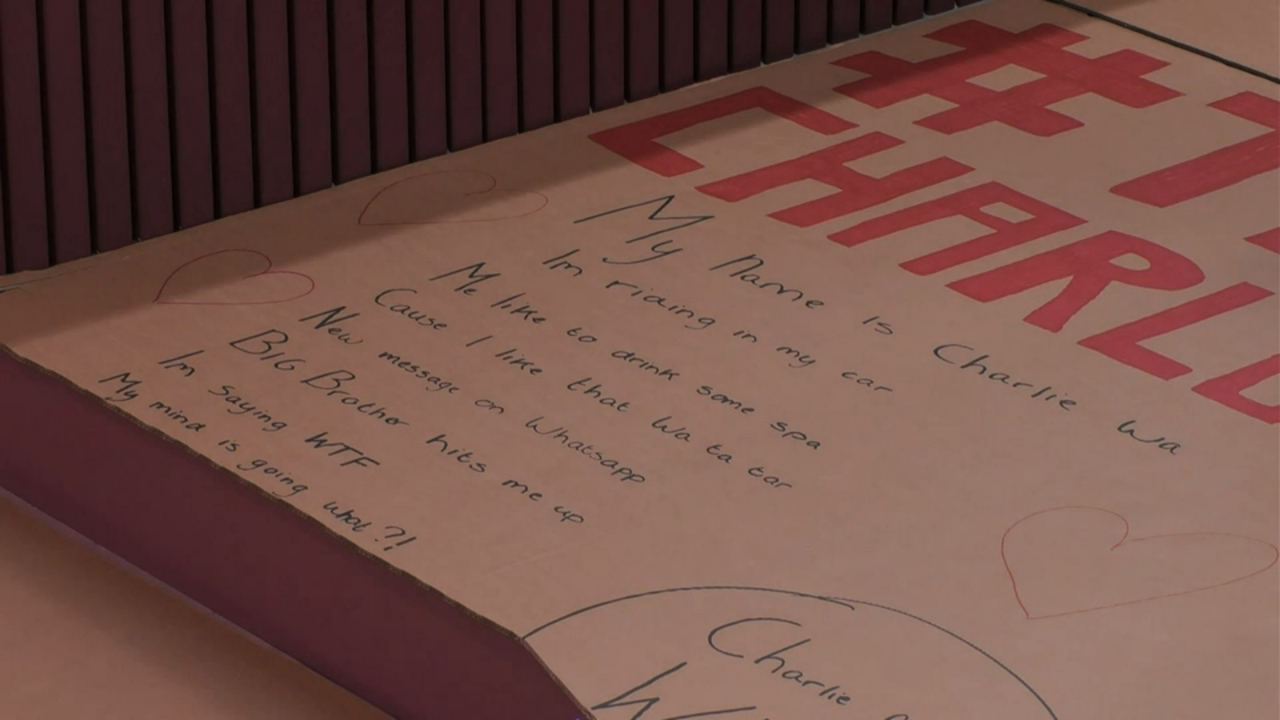 #T
CHARL
My Name is Charlie Wa
Im riding in my car
Me like to drink some spa
Cause I like that Wa ta tar
New message on Whatsapp
BIG Brother hits me up
Im saying WTF
My mind is going what?!
Charlie